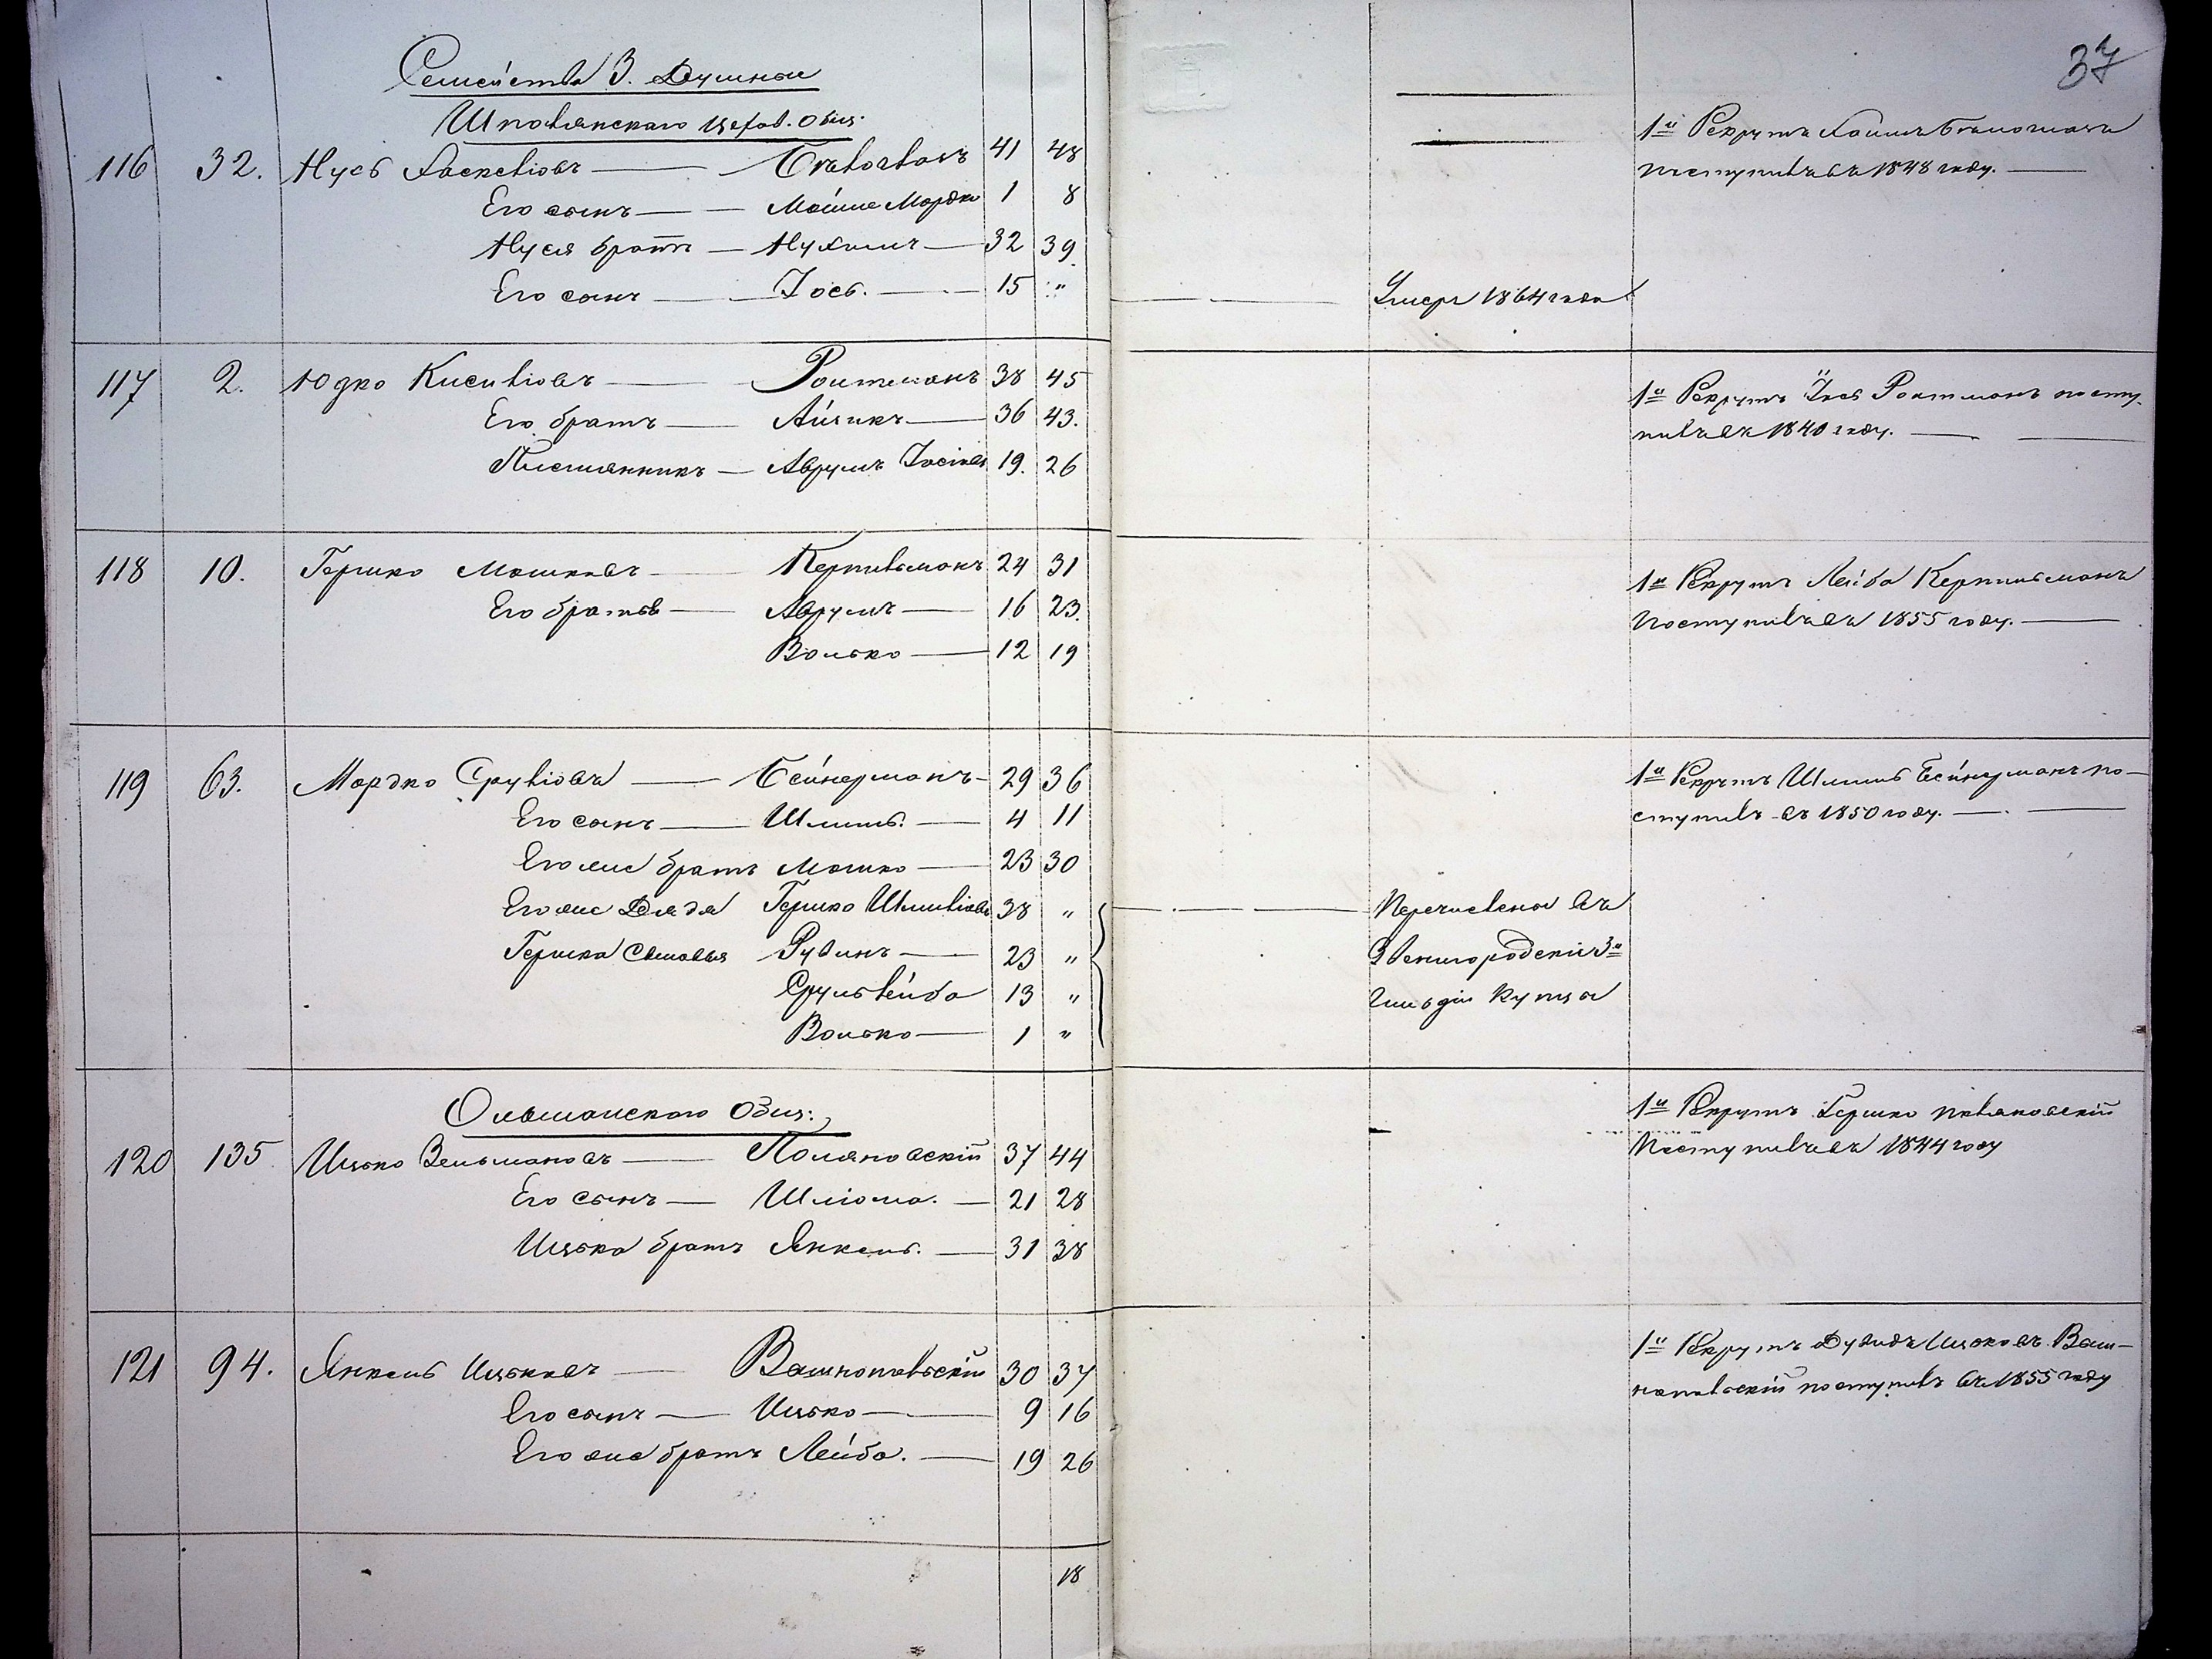 37
Семейства 3. Душныи
Шполянскаго Цехов. Общ.
116 32. Нусь Хаскеліовъ — 41 48
Его сынъ — Мошие Мордко 1 8
Нуся братъ — Нухимъ — 32 39.
Его сынъ — Іось. — 15 "
Умеръ 1864 года
1й Рекрутъ Хаимъ
поступилъ въ 1848 году. —
117 2. Юдко Кисиліовъ — Ройтманъ 38 45
Его братъ — Айзикъ — 36 43.
Племянникъ — Аврумъ Іосіовъ 19. 26
1й Рекрутъ Іось Ройтманъ посту-
пилъ въ 1840 году. —
118 10. Гершко Мошковъ — Керпильманъ 24 31
Его братья — Аврумъ — 16 23.
Волько — 12 19
1й Рекрутъ Лейба Керпильманъ
Поступилъ въ 1855 году. —
119 63. Мордко Сруліовъ — Бейнерманъ — 29 36
Его сынъ — Шмиль. — 4 11
Его же братъ Мошко — 23 30
Его же Дядя Гершко Шмиліовъ 38 "
Гершка Сыновья Рувинъ — 23 "
Сруль Лейба 13 "
Волько — 1 "
Перечислены въ
Звенигородскіи 3й
Гильдіи Купцы
1й Рекрутъ Шмиль Бейнерманъ по-
ступилъ въ 1850 году. —
Ольшанскаго Общ:
120 135 Ицько Зельмановъ — Поляновскій 37 44
Его сынъ — Шліома. — 21 28
Ицька братъ Янкель. — 31 38
1й Рекрутъ Гершко Поляновскій
Поступилъ въ 1844 году
121 94. Янкель Ицьковъ — Вашнопольскій 30 37
Его сынъ — Ицько — 9 16
Его же братъ Лейба. — 19 26
1й Рекрутъ Дувидъ Ицьковъ Ваш-
нопольскій поступилъ въ 1855 году
18